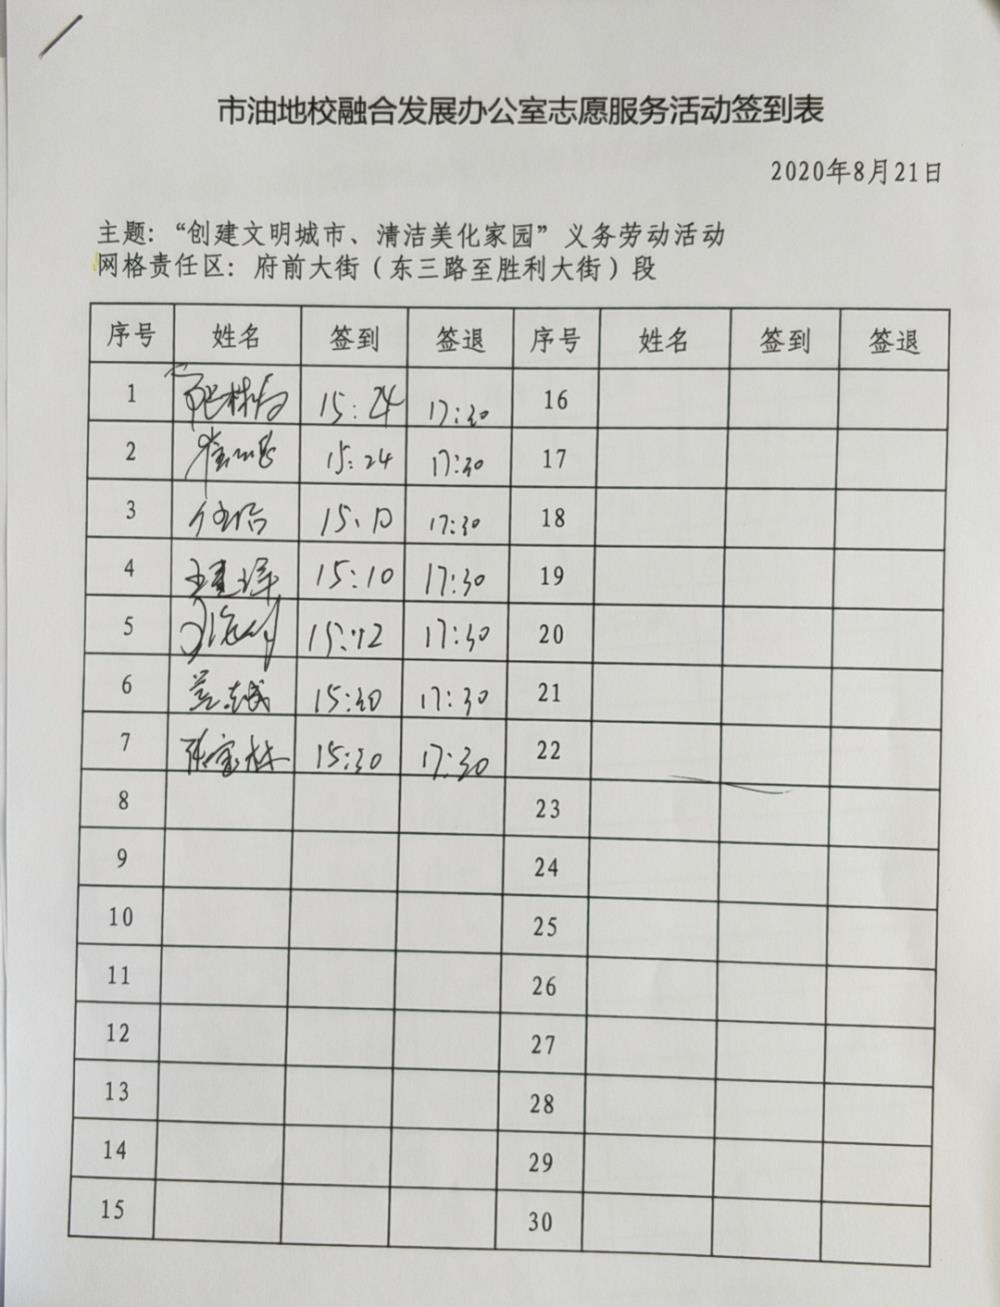 市油地校融合发展办公室志愿服务活动签到表
2020年8月21日
主题:“创建文明城市、清洁美化家园”义务劳动活动
网格责任区:府前大街(东三路至胜利大街)段
序号 姓名 签到 签退 序号 姓名 签到 签退
1 15:24 17:30 16
2 15:24 17:30 17
3 17:30 18
4 15:10 17:30 19
5 17:30 20
6 15:30 17:30 21
7 张宝林 15:30 17:30 22
8 23
9 24
10 25
11 26
12 27
13 28
14 29
15 30